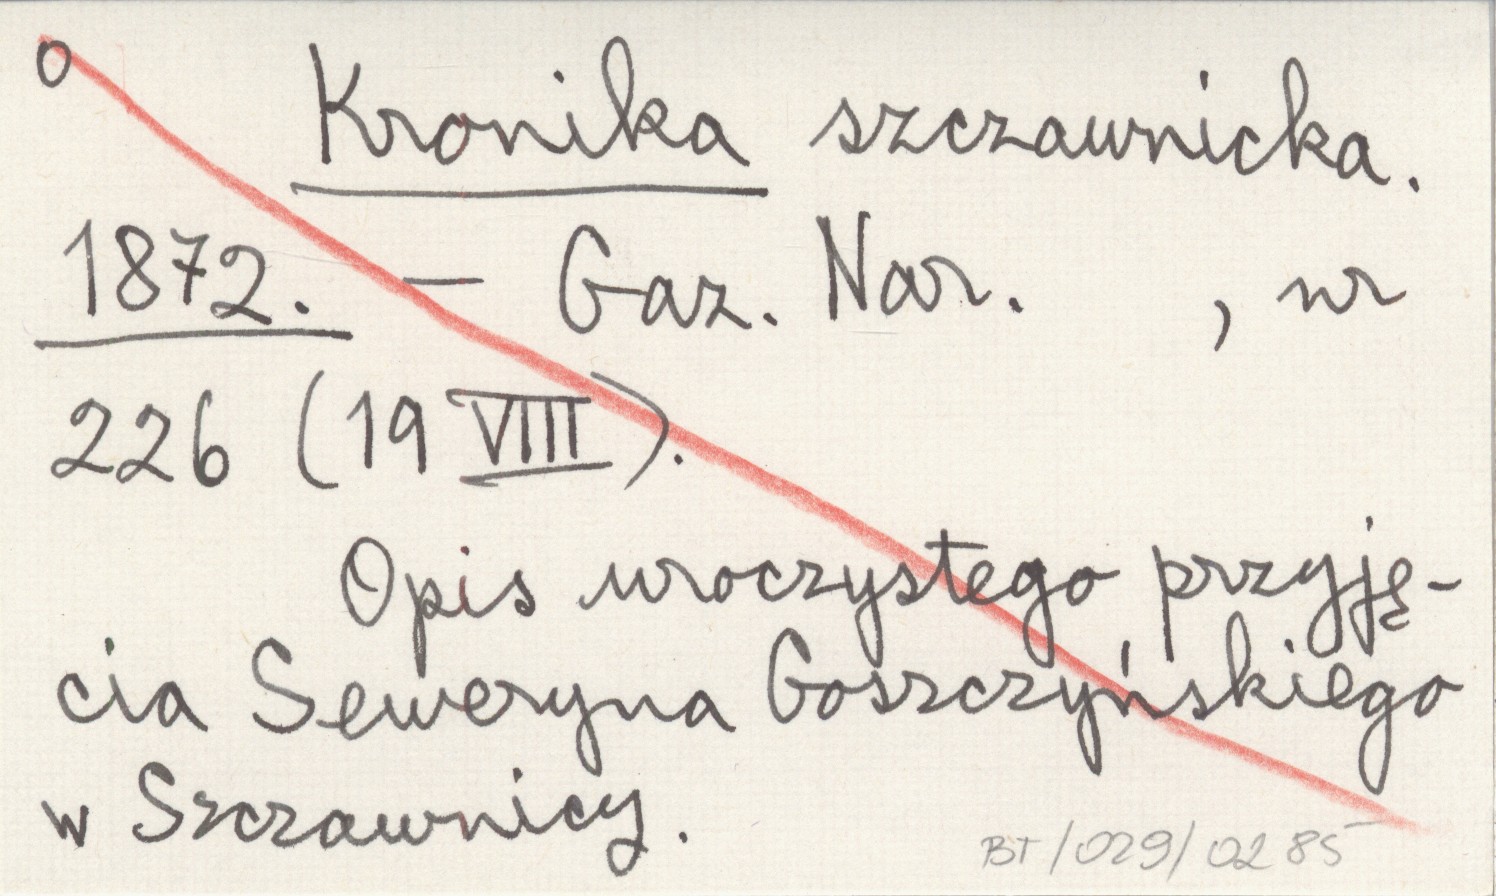 o Kronika szczawnicka.
1872. — Gaz. Nar. , nr
226 (19 VIII).
Opis uroczystego przyję-
cia Seweryna Goszczyńskiego
w Szczawnicy.
BT/029/0285